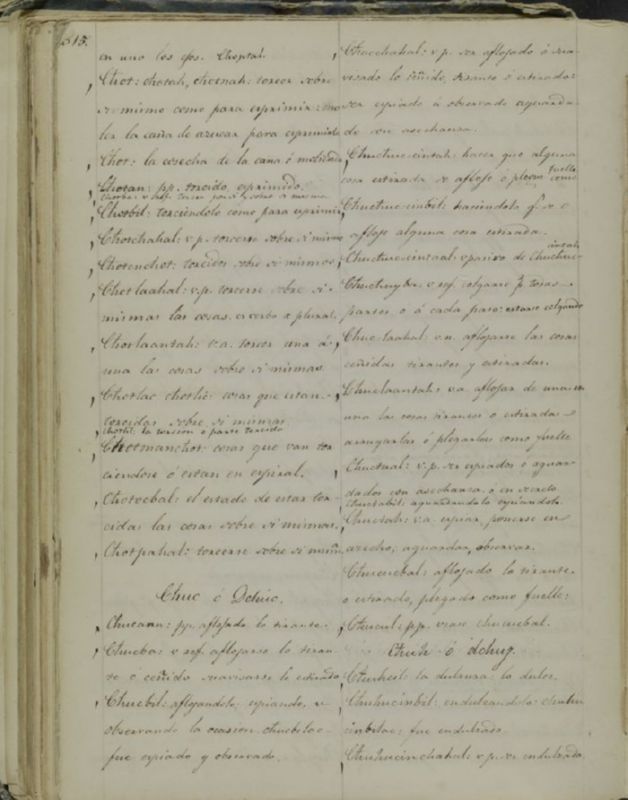 315.
en uno los ojos. Choptal.
Chot: chotah, chotnah: torcer sobre
si mismo como para exprimir: mo-
ler la caña de azucar para exprimirla
Chot: la cosecha de la caña ó molienda
Chotan: pp. torcido, exprimido.
Chotbil: torciéndolo como para exprimir
Chotchahal: v.p. torcerse sobre si mismo
Chotenchot: torcidos sobre si mismos
Chotlaahal: v.p. torcerse sobre si
mismas las cosas, es verbo de plural.
Chotlaantah: v.a. torcer una á
una las cosas sobre si mismas
Chotlac chotlic: cosas que estan
torcidas sobre si mismas
Chotmanchot: cosas que van tor-
ciendose ó estan en espiral.
Chotocbal: el estado de estar tor-
cidas las cosas sobre si mismas.
Chotpahal: torcerse sobre si mism
Chuc ó Dchuc.
Chucaan: pp. aflojado lo tirante.
Chucba: v. ref. aflojarse lo tiran-
te o ceñido suavisarse lo estirado
Chucbil: aflojandolo, espiando, u
observando la ocasion. chucbilac
fue espiado y observado.
Chucchahal: v.p. ser aflojado ó sua-
visado lo ceñido, tirante ó estirado:
ser espiado ú observado aguarda-
do con asechanza.
Chuchuc-cintah: hacer que alguna
cosa estirada se afloje ó plegue como fuelle
Chuchuc-cinbil: haciendola q. se
afloje alguna cosa estirada.
Chuchuc-cintaal: v. pasivo de Chuchuc-cintah
partes, o á cada paso: estarse colgando
Chuc-laahal: v.n. aflojarse las cosas
ceñidas tirantes y estiradas.
Chuclaantah: v.a. aflojar de una en
una las cosas tirantes o estiradas
arrugarlas ó plegarlas como fuelle
Chuctaal: v.p. ser espiados o aguar-
dados con asechanza, ó en secreto.
Chuctabil: aguardandolo espiandolo.
Chuctah: v.a. espiar, ponerse en
acecho, aguardar, observar.
Chucucbal: aflojado lo tirante
o estirado, plegado como fuelle:
Chucul: pp. vease chucucbal.
Chuh ó dchug.
la dulzura: lo dulce.
endulzandolo: chuhu
inbilac: fue endulzado
v.p. ser endulzado